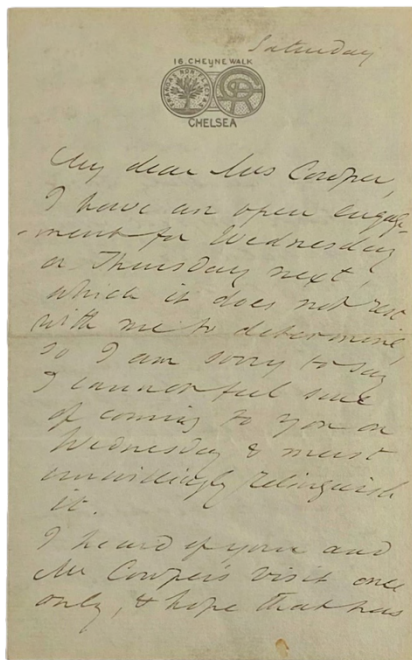 Saturday
16, CHEYNE WALK
FRANGAS NON FLECTAS
GR
CHELSEA
My dear Mrs Cowper,
I have an open engage-
-ment for Wednesday
or Thursday next,
which it does not rest
with me to determine,
so I am sorry to say
I cannot feel sure
of coming to you on
Wednesday & must
unwillingly relinquish
it.
I heard of your and
Mr Cowper's visit once
only, & hope that has